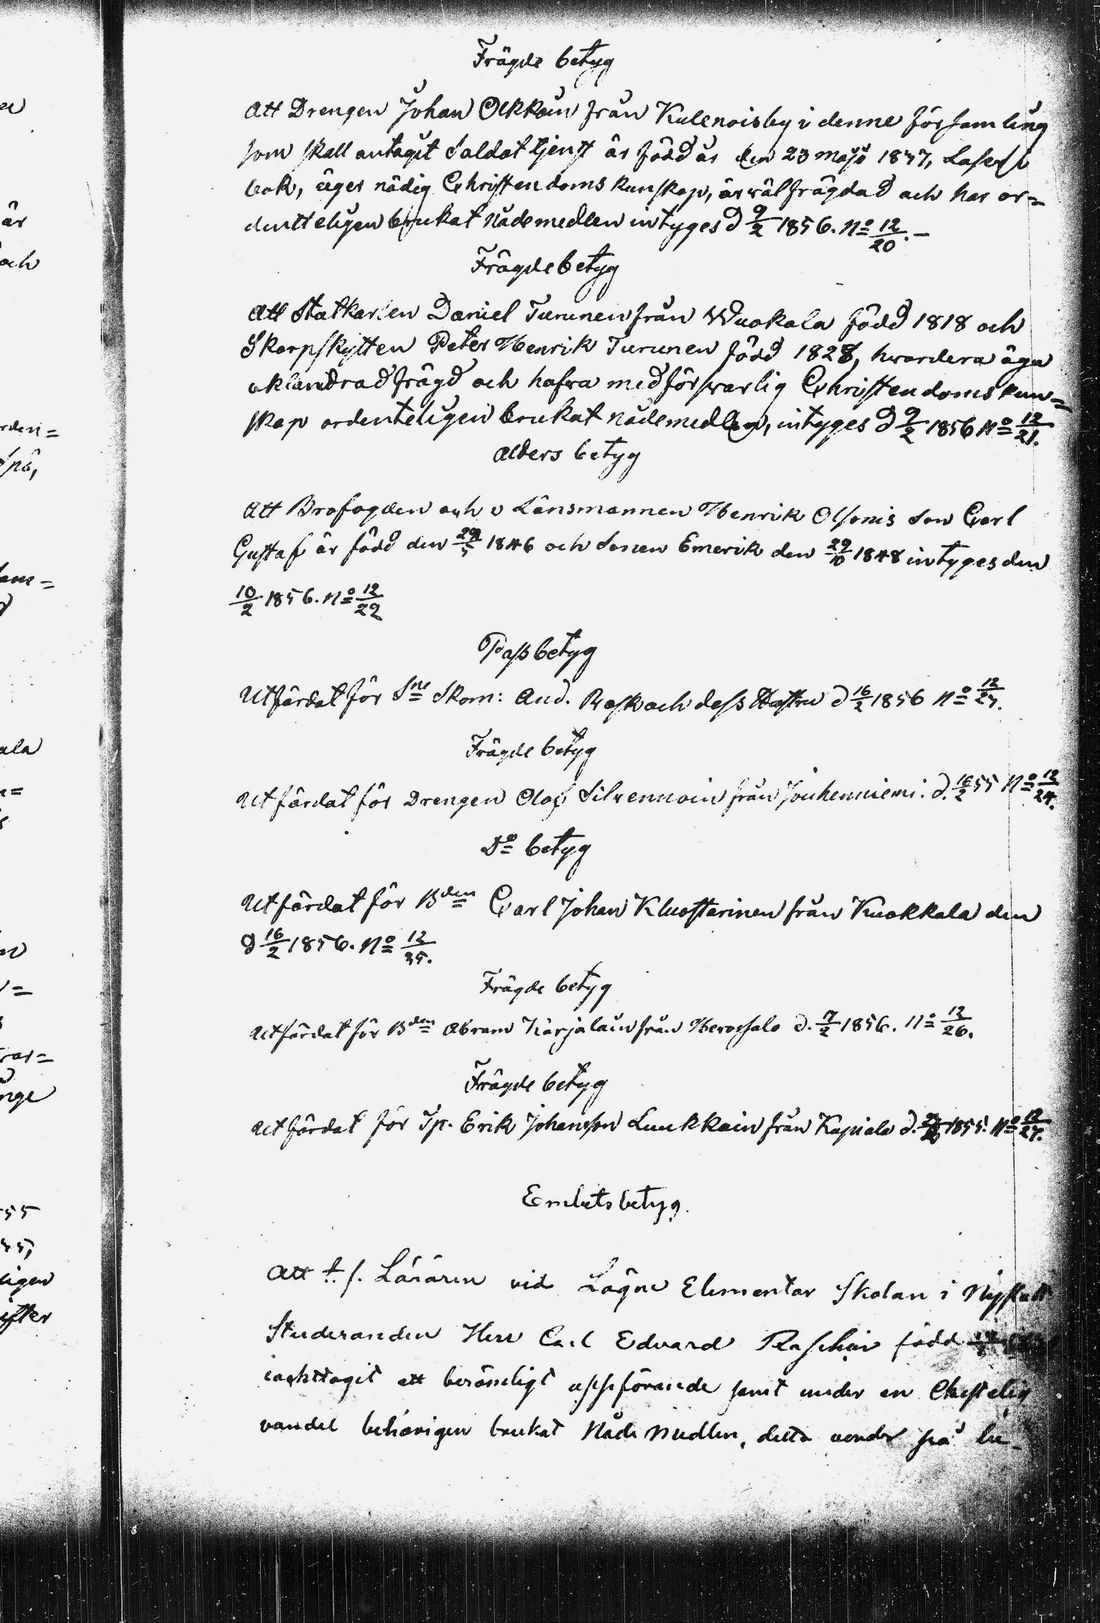 Frägde betyg
Att Drengen Johan Olkkoin från Kulenoisby i denne församling
som skall antagit Soldat tjenst är född år den 23 majo 1837, Laser i
bok, äger nödig Christendoms kunskap, är wäl frägdad och har or=
denteligen brukat Nådemedlen intyges d 9/2 1856. No 12/20. —
Frägdebetyg
Att Statkarlen Daniel Turunen från Wuokala född 1818 och
Skarpskytten Peter Henrik Turunen född 1828, hwardera äga
oklandrad frägd och hafwa med försvarlig Christendoms kun=
skap ordenteligen brukat nådemedlen, intyges d 9/2 1856 No 12/21.
Alders betyg
Att Brofogden och v Länsmannen Henrik Olsonis Son Carl
Gustaf är född den 29/5 1846 och Sonen Emerik den 29/10 1848 intyges den
10/2 1856. No 12/22
Passbetyg
Utfärdat för Sne Skom: And. Rask och dess Hustru d 16/2 1856 No 12/23.
Frägde betyg
Utfärdat för Drengen Olof Silvennoin från Jouhenniemi. d. 16/2 55 No 12/24.
Do betyg
Utfärdat för Bden Carl Johan Kluostarinen från Kuokkala den
d 16/2 1856. No 12/25.
Frägde betyg
Utfärdat för Bden Abram Karjalain från Hevossalo d. 17/2 1856. No 12/26.
Frägde betyg
Utfärdat för Tp. Erik Johansson Luukkain från Kapiala d. 1855. No 12/27.
Embetsbetyg.
Att t. f. Läraren vid Lägre Elementar Skolan i Nyslott
Studeranden Herr Carl Edvard född
iakttagit ett berömligt uppförande samt under en Christelig
vandel behörigen brukat Nåde Medlen, detta varder på be-